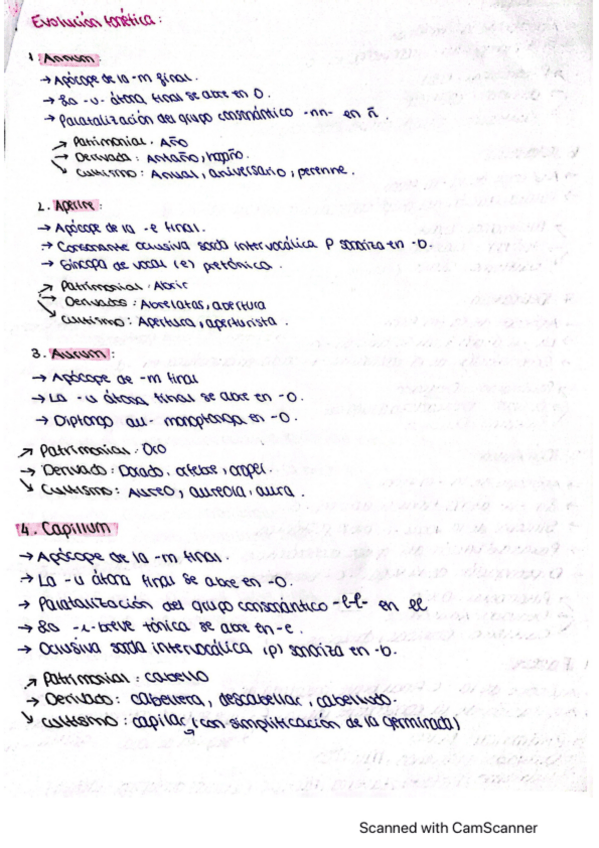 Evolución fonética:
1. Annum:
→ Apócope de la -m final.
→ La -u- átona final se abre en O.
→ Palatalización del grupo consonántico -nn- en ñ.
→ Patrimonial. Año
→ Derivada: Antaño, hogaño.
→ Cultismo: Anual, aniversario, perenne.
2. Aperire:
→ Apócope de la -e final.
→ Consonante oclusiva sorda intervocálica P sonoriza en -b.
→ Síncopa de vocal (e) pretónica.
→ Patrimonial. Abrir
→ Derivados: Abrelatas, apertura
→ Cultismo: Apertura, aperturista.
3. Aurum:
→ Apócope de -m final
→ La -u átona final se abre en -O.
→ Diptongo au- monoptonga en -O.
→ Patrimonial. Oro
→ Derivado: Dorado, orfebre,
→ Cultismo: Aureo, aureola, aura.
4. Capillum
→ Apócope de la -m final.
→ La -u átona final se abre en -O.
→ Palatalización del grupo consonántico -l-l- en ll
→ La -i-breve tónica se abre en -e.
→ Oclusiva sorda intervocálica (p) sonoriza en -b.
→ Patrimonial: cabello
→ Derivado: cabellera, descabellar, cabelludo
→ Cultismo: capilar (con simplificación de la germinada)
Scanned with CamScanner